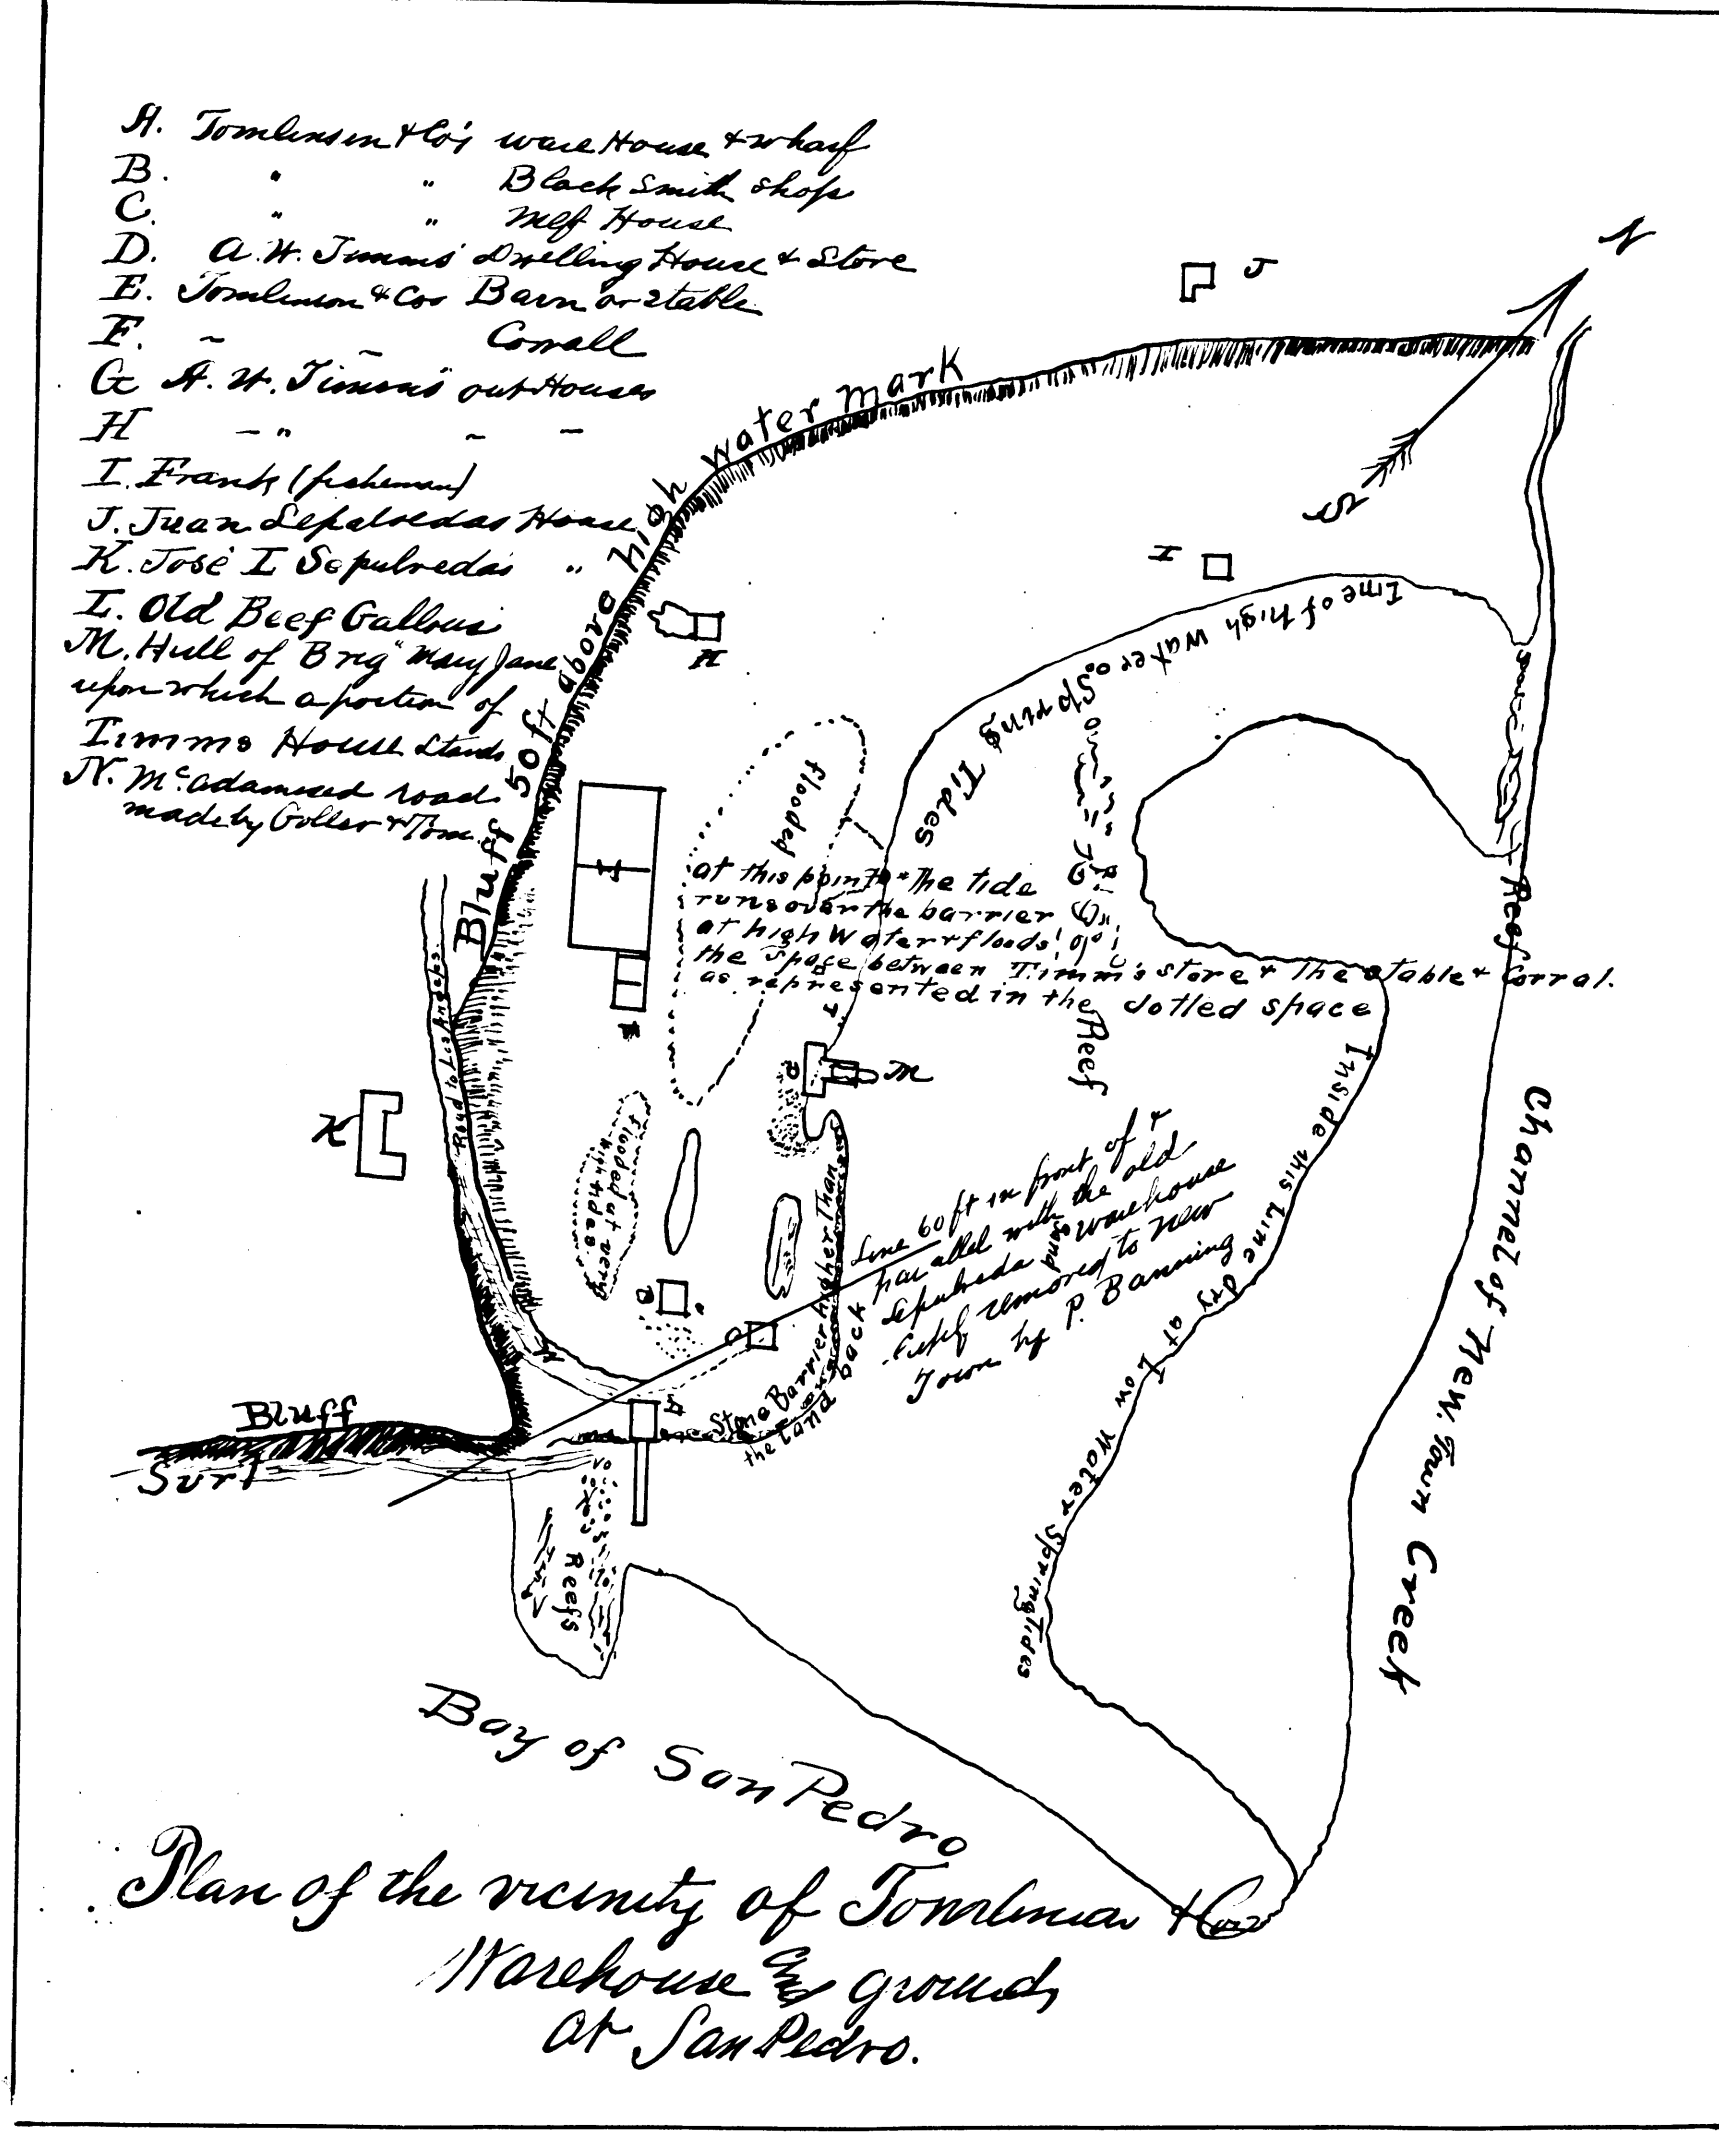 A. Tomlinson & Co's ware House & wharf
B. " " Black Smith shop
C. " " House
D. A. W. Timms' Dwelling House & Store
E. Tomlinson & Cos Barn or stable
F. ~ ~ Corrall
G A. W. Timms' out Houses
H – " ~ –
I. Frank (fisheman)
J. Juan Sepulvedas House
K. José I Sepulvedas "
L. Old Beef Gallows
M. Hull of Brig "Mary Jane
upon which a portion of
Timms House stands
N. McAdamised road
made by Goller & Tom
N
S
J
I
H
F
E
D
M
K
B
C
A
N
L
Bluff 50 ft above high water mark
Line of high water
Spring Tides
flooded
at this point The tide
runs over the barrier
at high Water & floods
the Space between Timm's store & The stable & Corral.
as represented in the dotted space
Reef
Reef
Road to Los Angeles
Flooded at very
high tides
Stone Barrier higher Than
the Land back
Line 60 ft in front of &
parallel with the old
Sepulveda warehouse
removed to New
Town by P. Banning
Sand
Inside this Line dry at Low Water Spring Tides
Channel of New. Town Creek
Bluff
Surf
Rocks
Reefs
Bay of San Pedro
Plan of the vicinity of Tomlinson & Cos
Warehouse and grounds
at San Pedro.